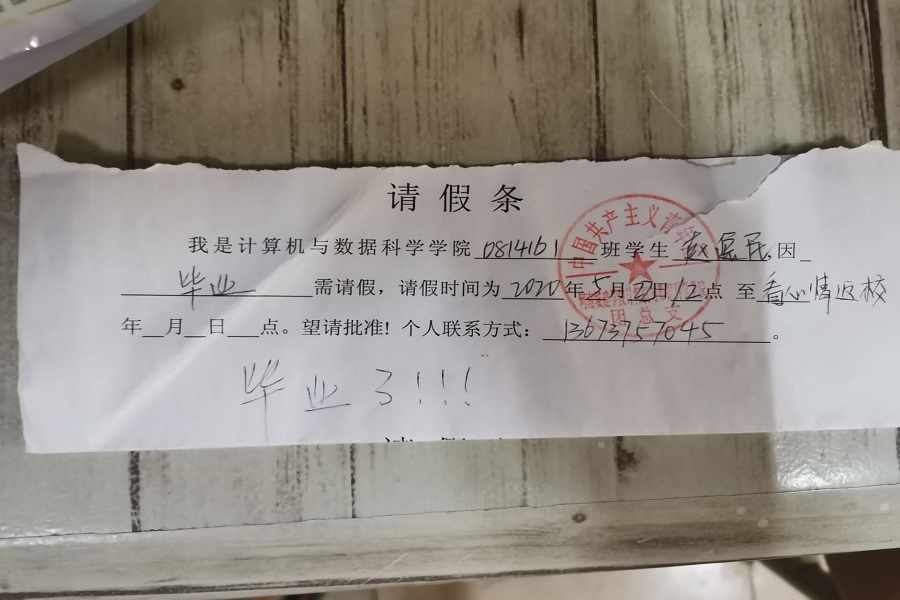 请假条
我是计算机与数据科学学院 0814161 班学生 赵 民,因
毕业 需请假,请假时间为 2020 年 5 月 日 12 点 至 看心情返校
年 月 日 点。望请批准!个人联系方式: 13673757045 。
毕业了!!!
中国共产主义青年
团总支